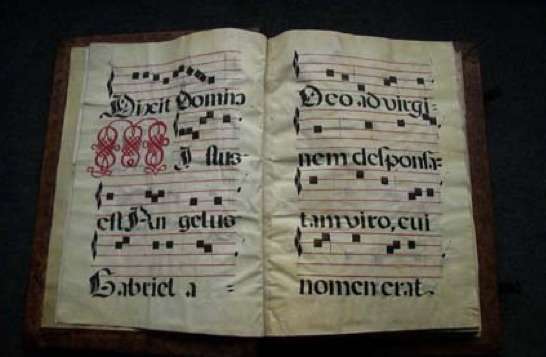 Dixit Domin
MIſſus
eſt An gelus
Gabriel a =
Deo ad virgi-
nem deſponſa-
tam viro, cui
nomen erat.